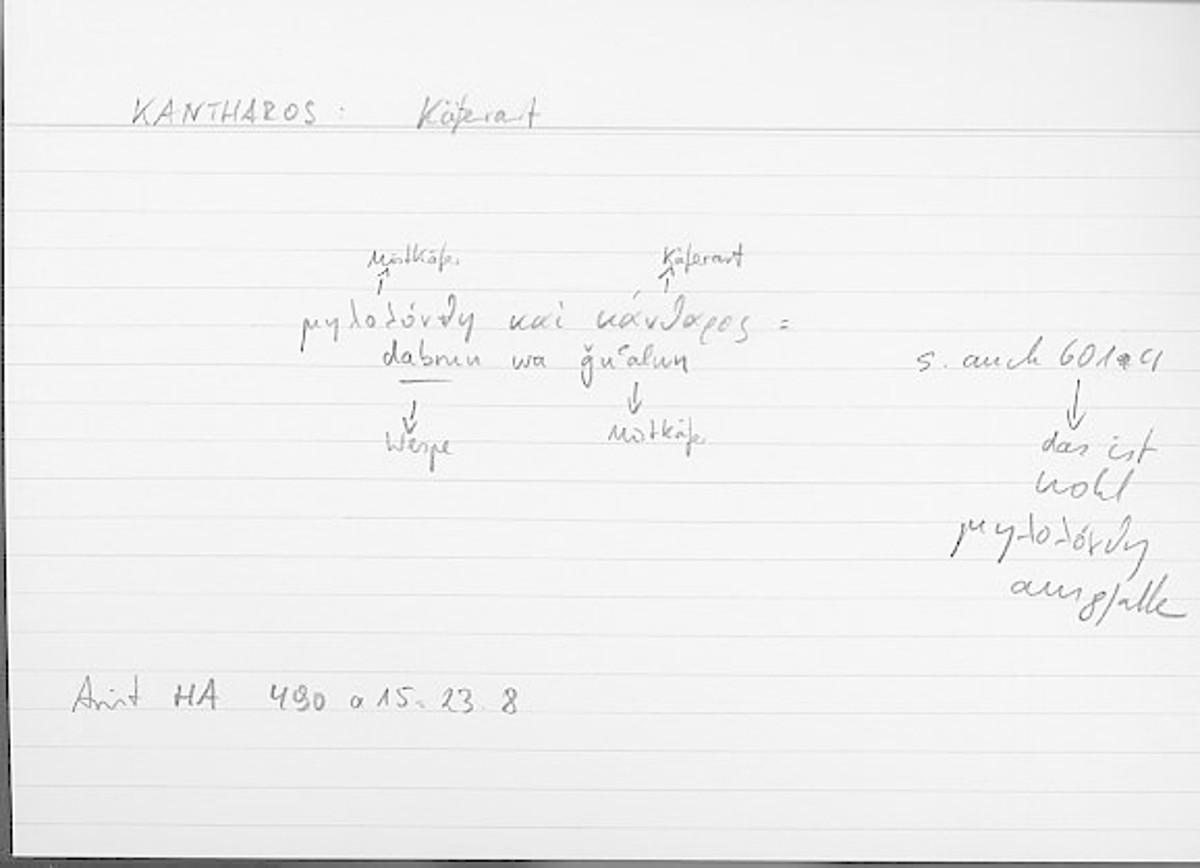 KANTHAROS : Käferart
Mistkäfer Käferart
μηλολόνθη καὶ κάνθαρος =
dabrun wa ǧuʿalun
s. auch 601a4
Wespe Mistkäfer
das ist
wohl
μηλολόνθη
ausgefallen
Arist HA 490 a 15 = 23.8